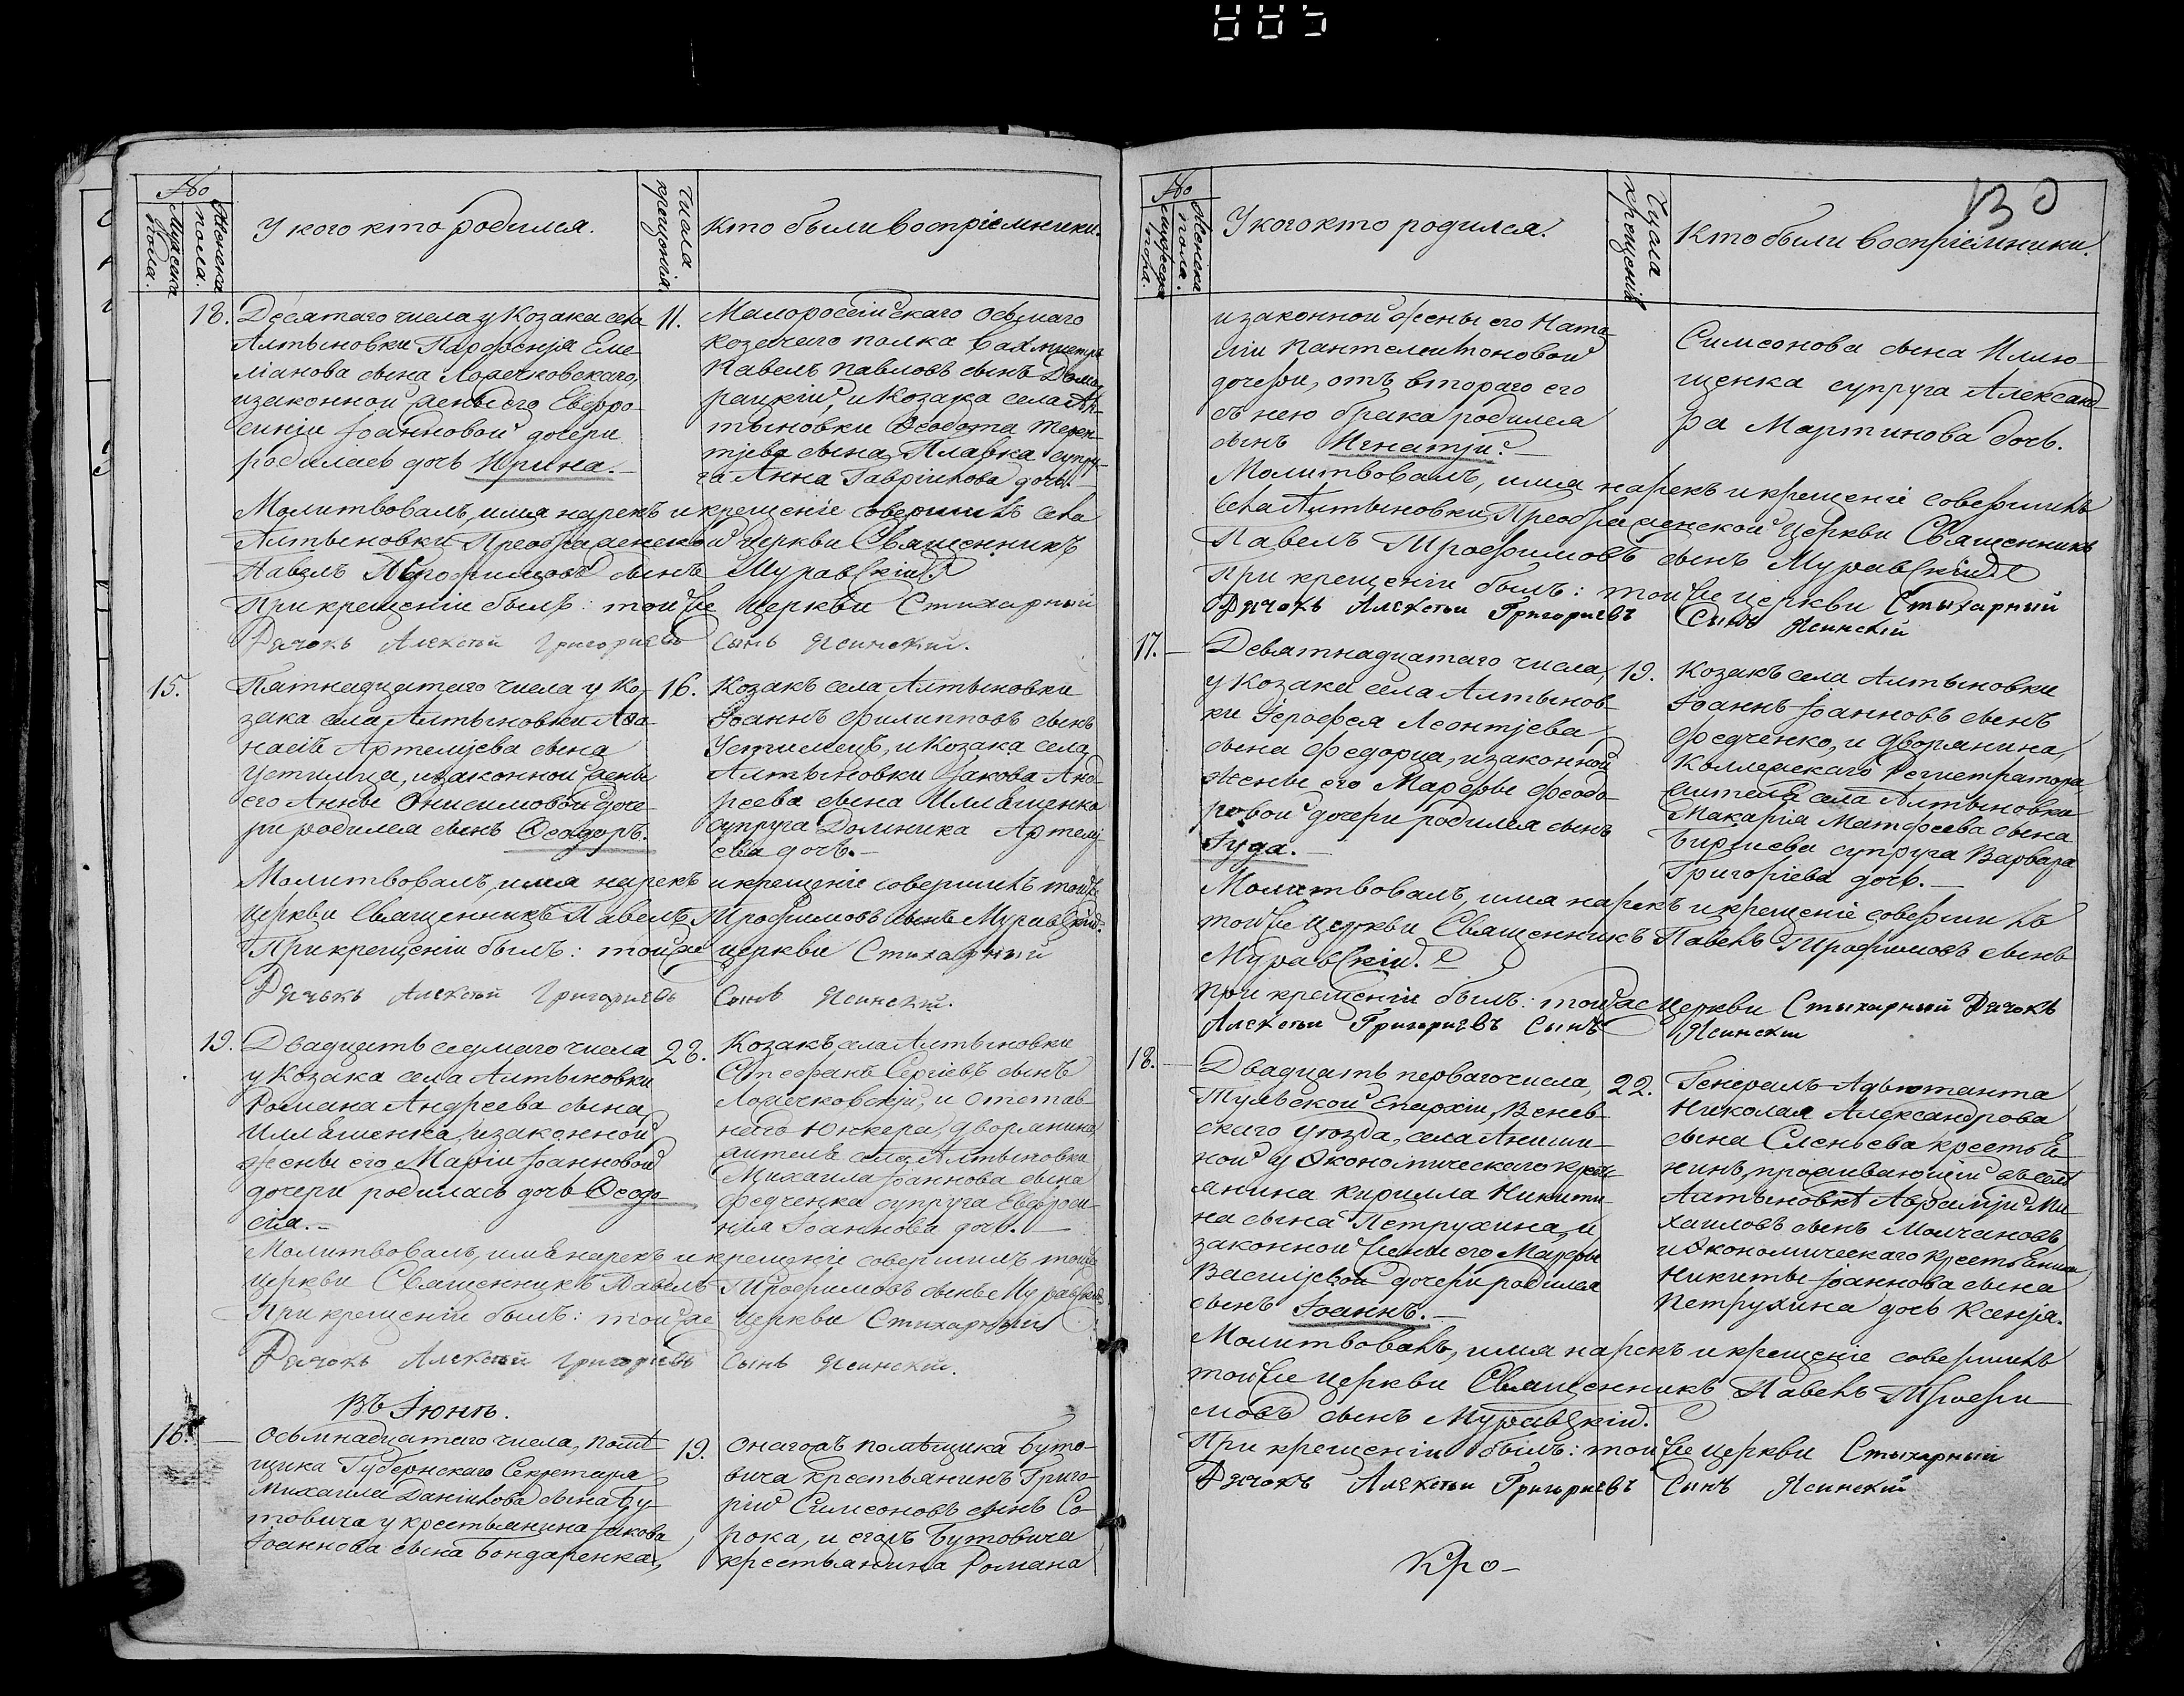 №
Мужеска пола.
Женска пола.
У кого кто родился.
Числа крещенія.
Кто были воспріемники.
18.
Десятаго числа у Козака села
Алтыновки Парфенія Еме-
ліанова сына
изаконной жены его Евфро-
синіи Іоанновой дочери
родилась дочь Ирина.
11.
Малоросейскаго Осьмаго
козачего полка
Павелъ Павловъ сынъ
и Козака села Ал-
тыновки Ѳеодота Терен-
тіева сына Плавка супру-
га Анна Гавріилова дочь.
Молитвовалъ, имя нарекъ и крещеніе совершилъ села
Алтыновки Преображенской Церкви Священникъ
Павелъ Трофимовъ сынъ Муравскій.
При крещеніи былъ: тойже церкви Стихарный
Дячокъ Алексѣй Григориевъ Сынъ Ясинскій.
15.
Пятнадцатаго числа у Ко-
зака села Алтыновки Аѳа-
насіѣ Артеміева сына
Устимца, изаконной жены
его Анны Онисимовой доче-
ри родился сынъ Ѳеодоръ.
16.
Козакъ села Алтыновки
Іоаннъ Филипповъ сынъ
Устимецъ, и Козака села
Алтыновки Іакова Анд-
реева сына Илляшенка
супруга Домника Артемі-
ева дочь.
Молитвовалъ, имя нарекъ и крещеніе совершилъ тойже
церкви Священникъ Павелъ Трофимовъ сынъ Муравскій.
При крещеніи былъ: тойже церкви Стихарный
Дячокъ Алексѣй Григориевъ Сынъ Ясинскій.
19.
Двадцать седмаго числа
у Козака села Алтыновки
Романа Андреева сына
Илляшенка, изаконной
жены его Маріи Іоанновой
дочери родилась дочь Ѳеодо-
сіа.
28.
Козакъ села Алтыновки
Стефанъ Сергіевъ сынъ
и Отстав-
наго Юнкера, дворянина,
жителя села Алтыновки
Михаила Іоаннова сына
Федченка супруга Евфроси-
нія Іоаннова дочь.
Молитвовалъ, имя нарекъ и крещеніе совершилъ тойже
церкви Священникъ Павелъ Трофимовъ сынъ Муравскій
При крещеніи былъ: тойже церкви Стихарный
Дячокъ Алексѣй Григориевъ Сынъ Ясинскій.
Въ Іюнѣ.
16.
Осьмнадцатаго числа, помѣ-
щика Губернскаго Секретаря
Михаила Даніилова сына Бу-
товича у крестьянина Іакова
Іоаннова сына Бондаренка,
19.
Онагожъ помѣщика Буто-
вича крестьянинъ Григо-
рій Симеоновъ сынъ Со-
рока, и егожъ Бутовича
крестьянина Романа
№
Мужеска пола.
Женска пола.
У кого кто родился.
Числа крещенія
Кто были воспріемники.
изаконной жены его Ната-
ліи Пантелеимоновой
дочери, отъ втораго его
съ нею брака родился
сынъ Игнатій.
Симеонова сына Иллю-
щенка супруга Александ-
ра Мартинова дочь.
Молитвовалъ, имя нарекъ и крещеніе совершилъ
села Алтыновки Преображенской Церкви Священникъ
Павелъ Трофимовъ сынъ Муравскій.
При крещеніи былъ: тойже церкви Стыхарный
Дячокъ Алексѣй Григориевъ Сынъ Ясинскій
17.
Девятнадцатаго числа,
у Козака села Алтынов-
ки Герофея Леонтіева
сына Федорца, изаконной
жены его Марфы Феодо-
ровой дочери родился сынъ
Іуда.
19.
Козакъ села Алтыновки
Іоаннъ Іоанновъ сынъ
Федченко, и дворянина,
Коллежскаго Регистратора
жителя села Алтыновки
Макарія Матфеева сына
супруга Варвара
Григоріева дочь.
Молитвовалъ, имя нарекъ и крещеніе совершилъ
тойже церкви Священникъ Павелъ Трофимовъ сынъ
Муравскій.
При крещеніи былъ: тойже Церкви Стыхарный Дячокъ
Алексѣй Григориевъ Сынъ Ясинскій
18.
Двадцать перваго числа,
Тульской Епархіи, Венев-
скаго уѣзда, села Аниши-
ной у Экономическаго крест-
янина Кирилла Никити-
на сына Петрухина, и
законной жены его Марфы
Василіевой дочери родился
сынъ Іоаннъ.
22.
Генералъ-Адъютанта
Николая Александрова
сына крестья-
нинъ, проживающій въ селѣ
Алтыновкѣ Аврамій Ми-
хаиловъ сынъ Молчановъ
и Экономическаго крестьянина
Никиты Іоаннова сына
Петрухина дочь Ксенія.
Молитвовалъ, имя нарекъ и крещеніе совершилъ
тойже церкви Священникъ Павелъ Трофи-
мовъ сынъ Муравскій.
При крещеніи былъ: тойже церкви Стыхарный
Дячокъ Алексѣй Григориевъ Сынъ Ясинскій
Кро-